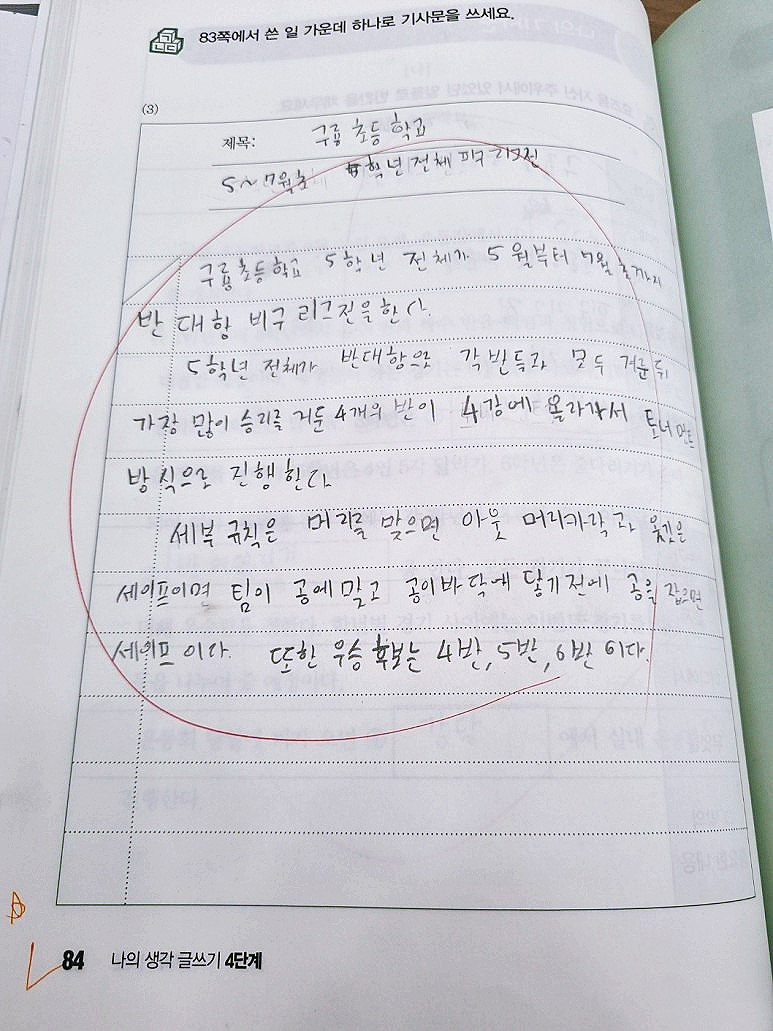 83쪽에서 쓴 일 가운데 하나로 기사문을 쓰세요.
(3)
제목: 구룡초등학교
5~7월초 5학년 전체 피구 리그전
구룡초등학교 5학년 전체가 5월부터 7월 초까지
반 대항 피구 리그전을 한다.
5학년 전체가 반대항으로 각 반들과 모두 겨룬 뒤
가장 많이 승리를 거둔 4개의 반이 4강에 올라가서 토너먼트
방식으로 진행한다
세부 규칙은 머리를 맞으면 아웃 머리카락과 옷깃은
세이프이며 팀이 공에 맞고 공이 바닥에 닿기 전에 공을 잡으면
세이프 이다. 또한 우승 후보는 4반, 5반, 6반 이다.
84 나의 생각 글쓰기 4단계